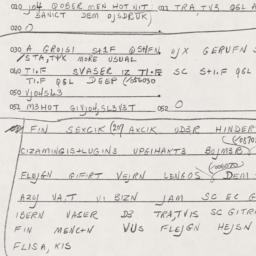 010 JO4 QOBER MEN HOT NIT. 012 TRA TVS QGL A
BANICT DEM OJSDRUK)
020 O
030 A GROISI S+IF QSHFN OJX GERUFN S
/STA,TVK MORE USUAL
040 TI.F 3VASER IZ TI.F SC S+I.F QGL
TI.F QGL DEEP
050 VJOHSL3
051 M3HOT GIVJOH,SL3VST 052 O
FIN SEXCIK (2M) AXCIK UD3R HINDER
CIZAMINGIS+LUGIN3 UPGIHAXT3 BOJM3R
FLEJGN GIFIRT VEIRN LENGOS DEM
AZOJ VA.T VI BIZN JAM SC EC G
IBERN VASER D3 TRA,TVIS SC GITR
FIN MENCN VUS FLEJGN HEJSN
FLISA, KIS